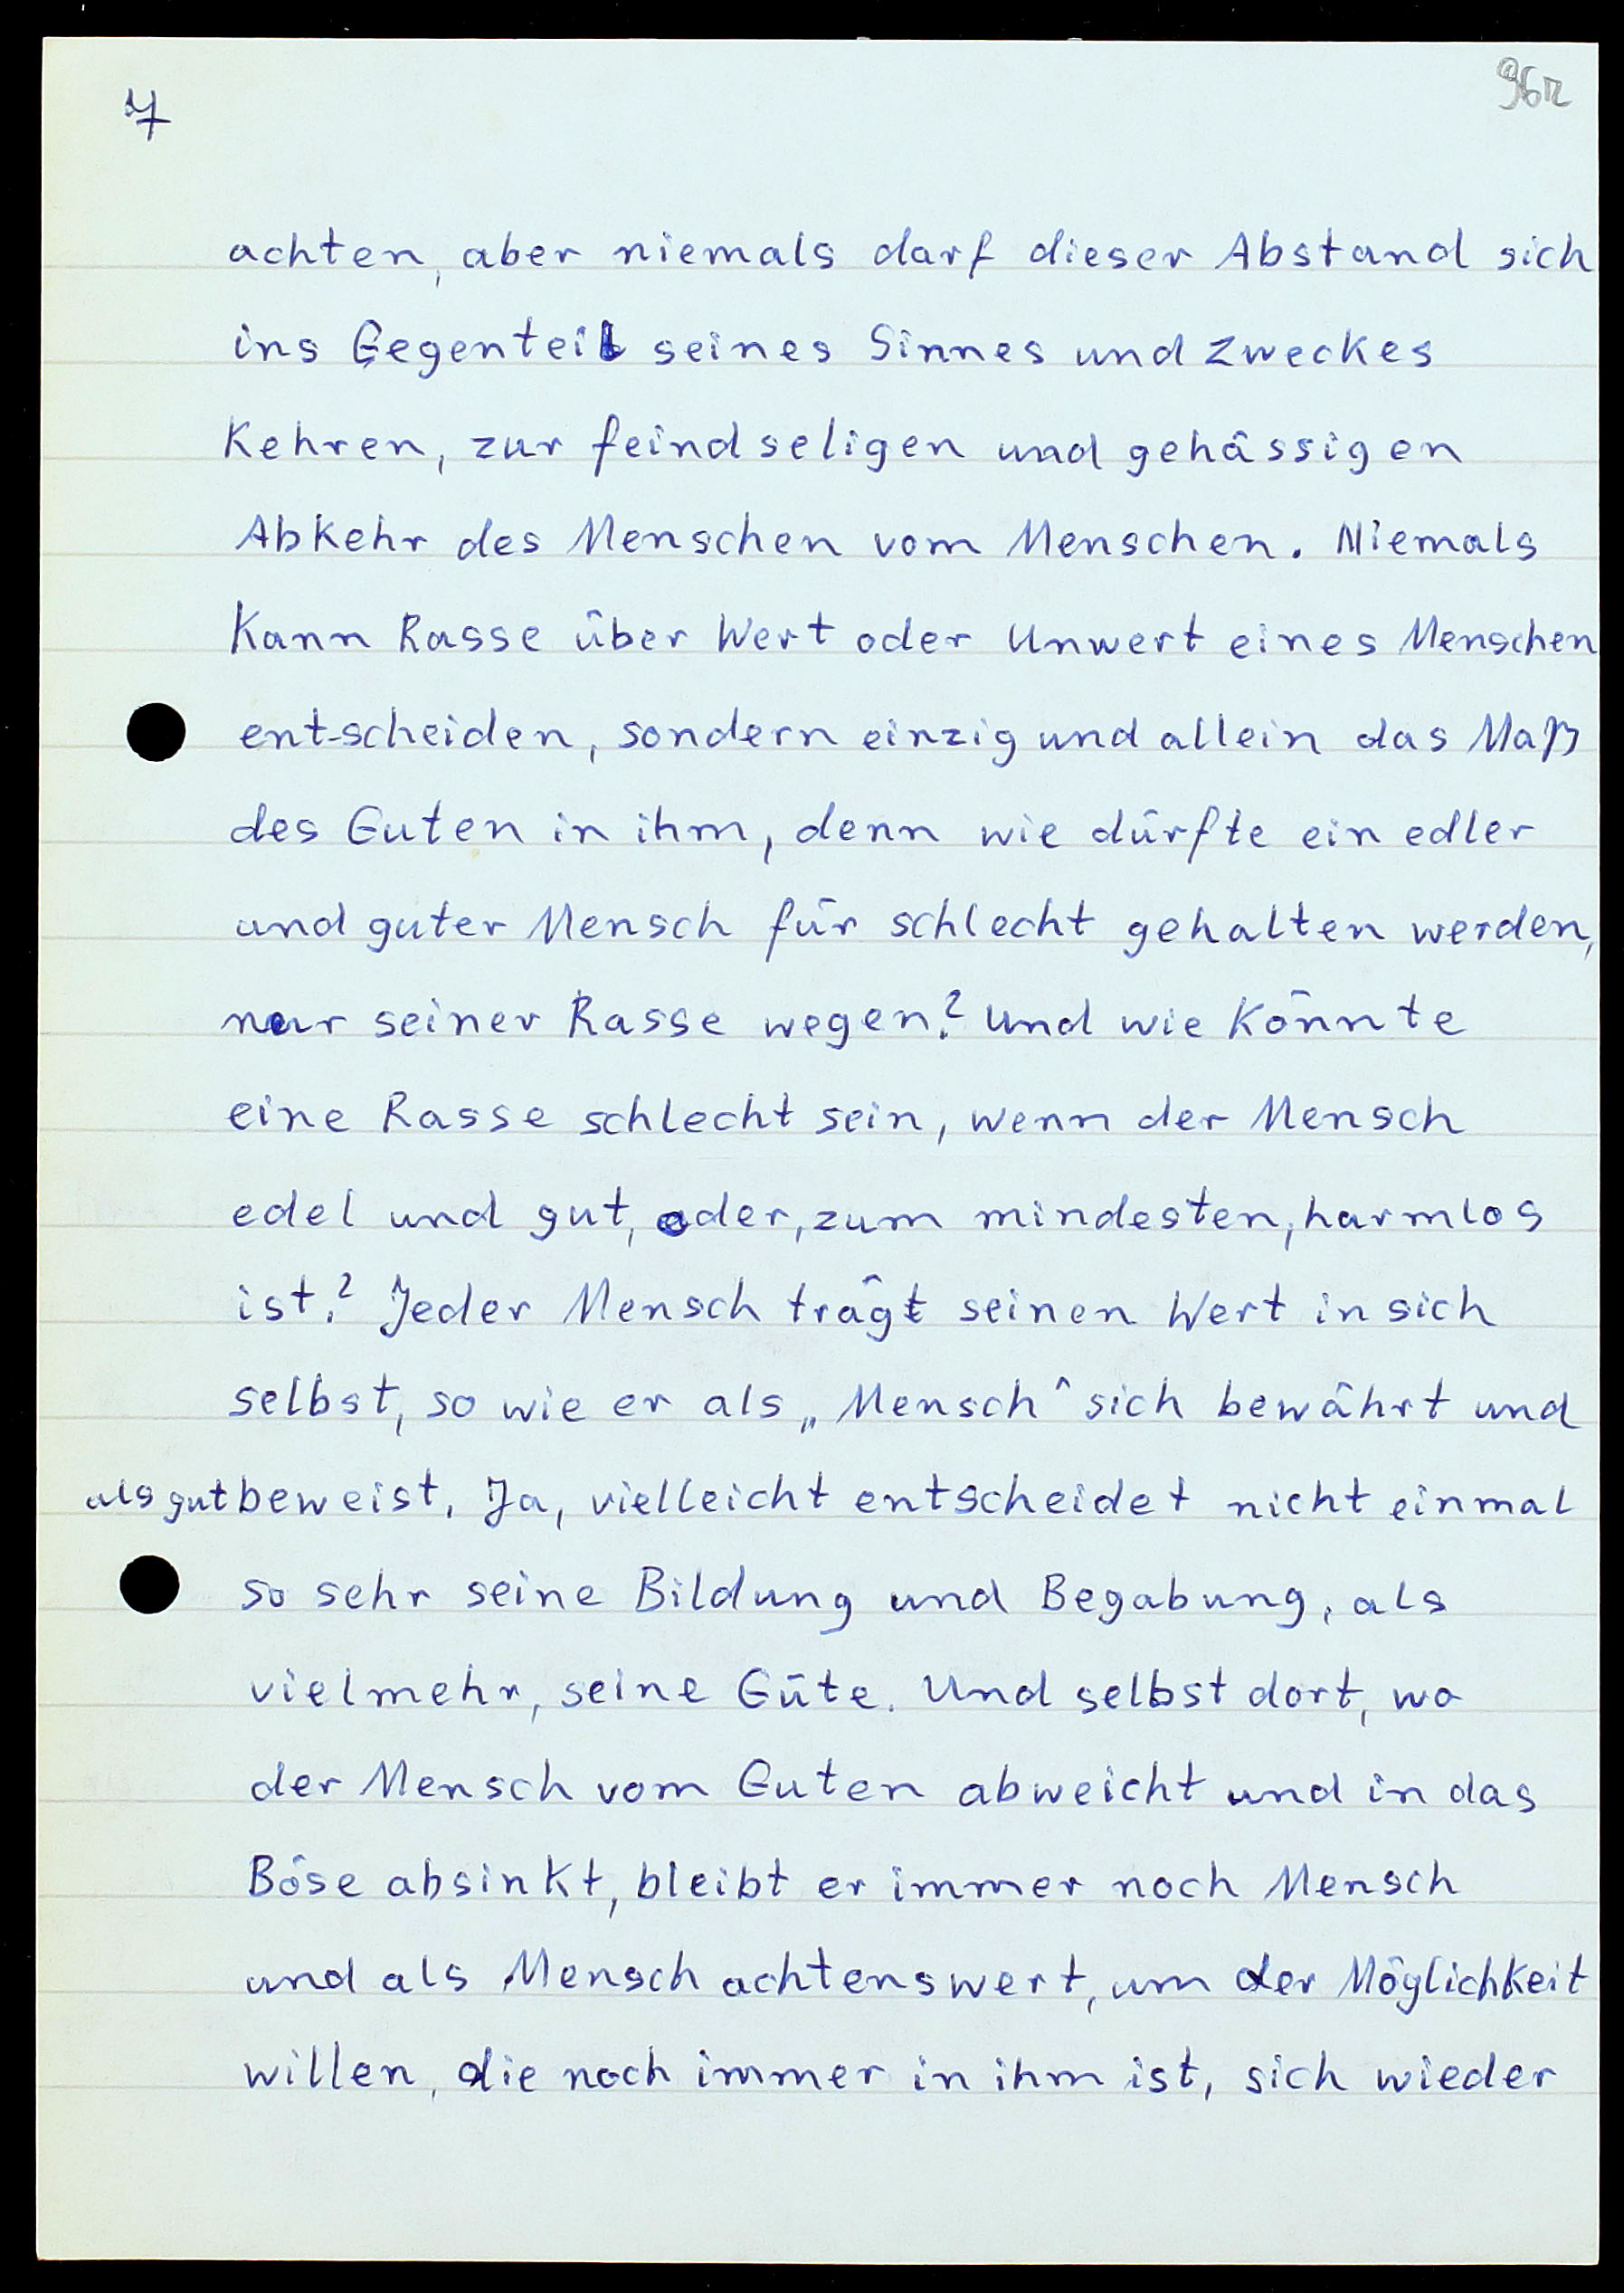 7
96r
achten, aber niemals darf dieser Abstand sich
ins Gegenteil seines Sinnes und Zweckes
kehren, zur feindseligen und gehässigen
Abkehr des Menschen vom Menschen. Niemals
kann Rasse über Wert oder Unwert eines Menschen
ent-scheiden, sondern einzig und allein das Maß
des Guten in ihm, denn wie dürfte ein edler
und guter Mensch für schlecht gehalten werden,
nur seiner Rasse wegen? Und wie könnte
eine Rasse schlecht sein, wenn der Mensch
edel und gut, oder, zum mindesten, harmlos
ist? Jeder Mensch trägt seinen Wert in sich
selbst, so wie er als „Mensch" sich bewährt und
als gut beweist. Ja, vielleicht entscheidet nicht einmal
so sehr seine Bildung und Begabung, als
vielmehr, seine Güte. Und selbst dort, wo
der Mensch vom Guten abweicht und in das
Böse absinkt, bleibt er immer noch Mensch
und als Mensch achtenswert, um der Möglichkeit
willen, die noch immer in ihm ist, sich wieder